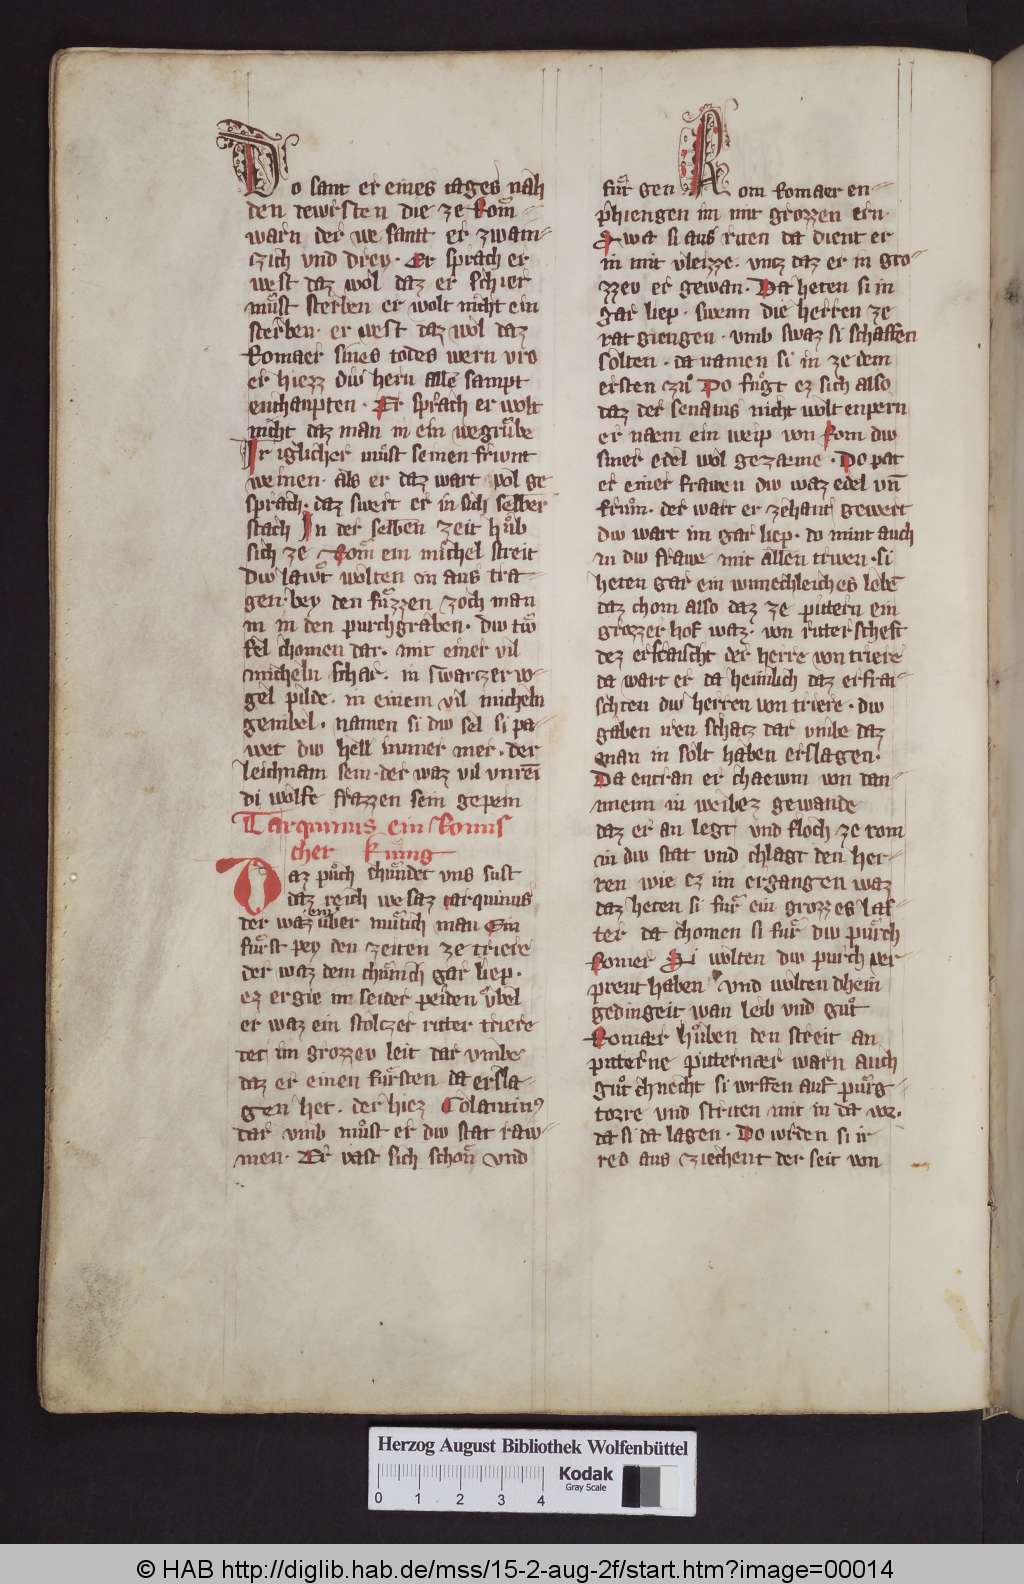 Do sant er eines tages nah
den tewrsten die ze Rom
warn der we santt er zwain-
czich vnd drey. Er sprach er
west daz wol daz er schier
můst sterben er wolt nicht ein
sterben. er west daz wol daz
Romaer sines todes wern vro
er hiezz diw hern alle sampt
enthaupten. Er sprach er wolt
nicht daz man in ein wegrůbe
Ir iglicher můst seinen friwnt
weinen. als er daz wart vol ge
sprach. daz swert er in sich selber
stach In der selben zeit hůb
sich ze Rom ein michel streit
Diw lawt wolten in aus tra-
gen. bey den fůzzen zoch man
in in den purchgraben. diw tiw
fel chomen dar. mit einer vil
micheln schar. in swarczer vo-
gel pilde. in einem vil micheln
gembel. namen si diw sel si pa-
wet diw hell immer mer. der
leichnam sein. der waz vil vnrei
di wolfe frazzen sein gepein
Tarquinius ein Romis
cher kunig
Daz půch chundet vns sust
daz reich wesaz tarquinius
der waz ein vber mutich man Ein
fůrst pey den zeiten ze triere
der waz dem chunich gar liep.
ez ergie im seider peiden vbel
er waz ein stolczer ritter triere
tet im grozzev leit dar vmbe
daz er einen fůrsten da ersla-
gen het. der hiez Colatinus
dar vmb můst er diw stat raw-
men. Er vast sich schon vnd
fůr gen Rom Romaer en-
phiengen im mit grozzen ern.
Swa si aus riten da dient er
in mit vleizze. vncz daz er in gro-
zzev er gewan. Da heten si in
gar liep. swenn die herren ze
rat giengen. vmb swaz si schaffen
solten. da namen si in ze dem
ersten zů Do fůgt ez sich also
daz der senatus nicht wolt enpern
er naem ein weip von Rom diw
siner edel wol gezaeme. Do pat
er einer frawen diw waz edel vn
frům. der wart er zehant gewert
diw wart im gar liep. do mint auch
in diw frawe mit allen triwen. si
heten gar ein wunechleiches lebe
daz chom also daz ze pittern ein
grozzer hof waz. von ritterscheft
dez erfraischt der herre von triere
da wart er da heimlich daz erfrai-
schten diw herren von triere. diw
gaben iren schatz dar vmbe daz
man in solt haben erslagen.
Da entran er chaewm von dan-
nnenn in weibez gewande
daz er an legt vnd floch ze rom
in diw stat vnd chlagt den her-
ren wie ez im ergangen waz
daz heten si fůr ein grozzes las-
ter da chomen si fůr diw půrch
Romer Si wolten diw purch ver-
prent haben vnd wolten dhein
gedingeit wan leib vnd gůt
Romaer hůben den streit an
pitterne pitternaer warn auch
gůt chnecht si wrffen auf půrg-
torre vnd striten mit in da vor.
da si da lagen. Do wrden si ir
red aus ziechent der seit von
Herzog August Bibliothek Wolfenbüttel
0 1 2 3 4
Kodak
Gray Scale
© HAB http://diglib.hab.de/mss/15-2-aug-2f/start.htm?image=00014